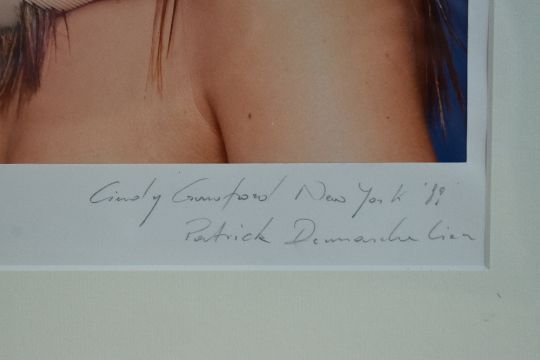 Cindy Crawford New York '89
Patrick Demarchelier